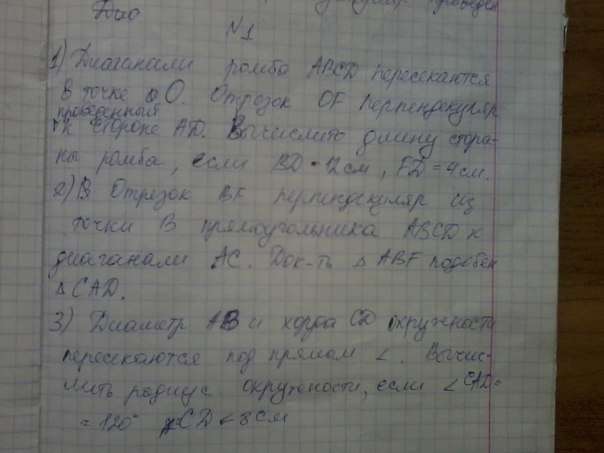 №1
1) Диаганали ромба ABCD пересекаются
в точке O. Отрезок OF перпендикуляр
проведенный
к стороне AD. Вычислить длину сторо-
ны ромба, если BD = 12см, FD = 4см.
2) В Отрезок BF перпендикуляр из
точки B прямоугольника ABCD к
диаганали AC. Док-ть △ ABF подобен
△ CAD.
3) Диаметр AB и хорда CD окружности
пересекаются под прямом ∠. Вычис-
лить радиус окружности, если ∠CAD=
= 120° CD = 8см